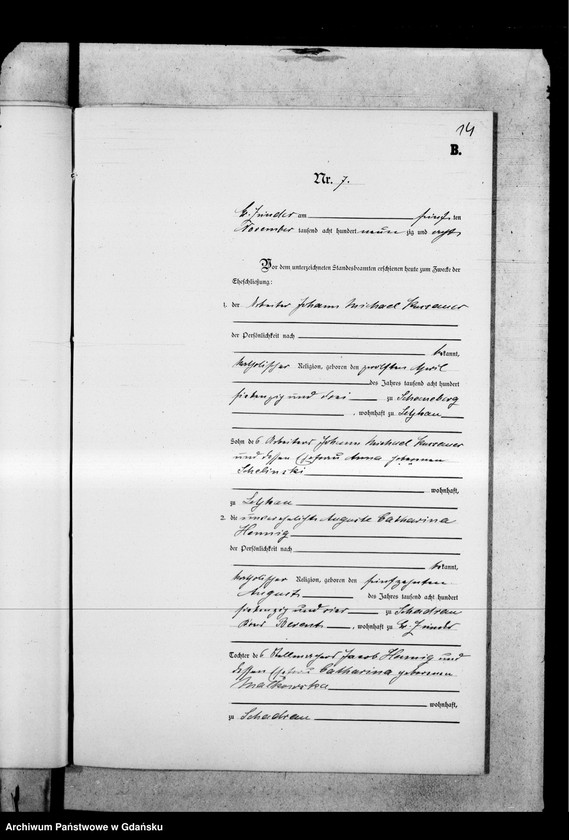 14
B.
Nr. 7.
Gr. Zünder am fünften
November tausend acht hundert neunzig und acht
Vor dem unterzeichneten Standesbeamten erschienen heute zum Zwecke der
Eheschließung:
1. der Arbeiter Johann Michael
der Persönlichkeit nach
bekannt,
katholischer Religion, geboren den zwölften April
des Jahres tausend acht hundert
siebenzig und drei zu Schöneberg
, wohnhaft zu Letzkau
Sohn des Arbeiters Johann Michael
und dessen Ehefrau Anna geborenen
Schelinski
wohnhaft,
zu Letzkau
2. die unverehelichte Auguste Catharina
Hennig
der Persönlichkeit nach
bekannt,
katholischer Religion, geboren den fünfzehnten
August des Jahres tausend acht hundert
siebenzig und vier zu Schadrau
Kreis Berent, wohnhaft zu Gr. Zünder
Tochter des Stellmachers Jacob Hennig und
dessen Ehefrau Catharina geborenen
Malkowska
wohnhaft,
zu Schadrau
Archiwum Państwowe w Gdańsku